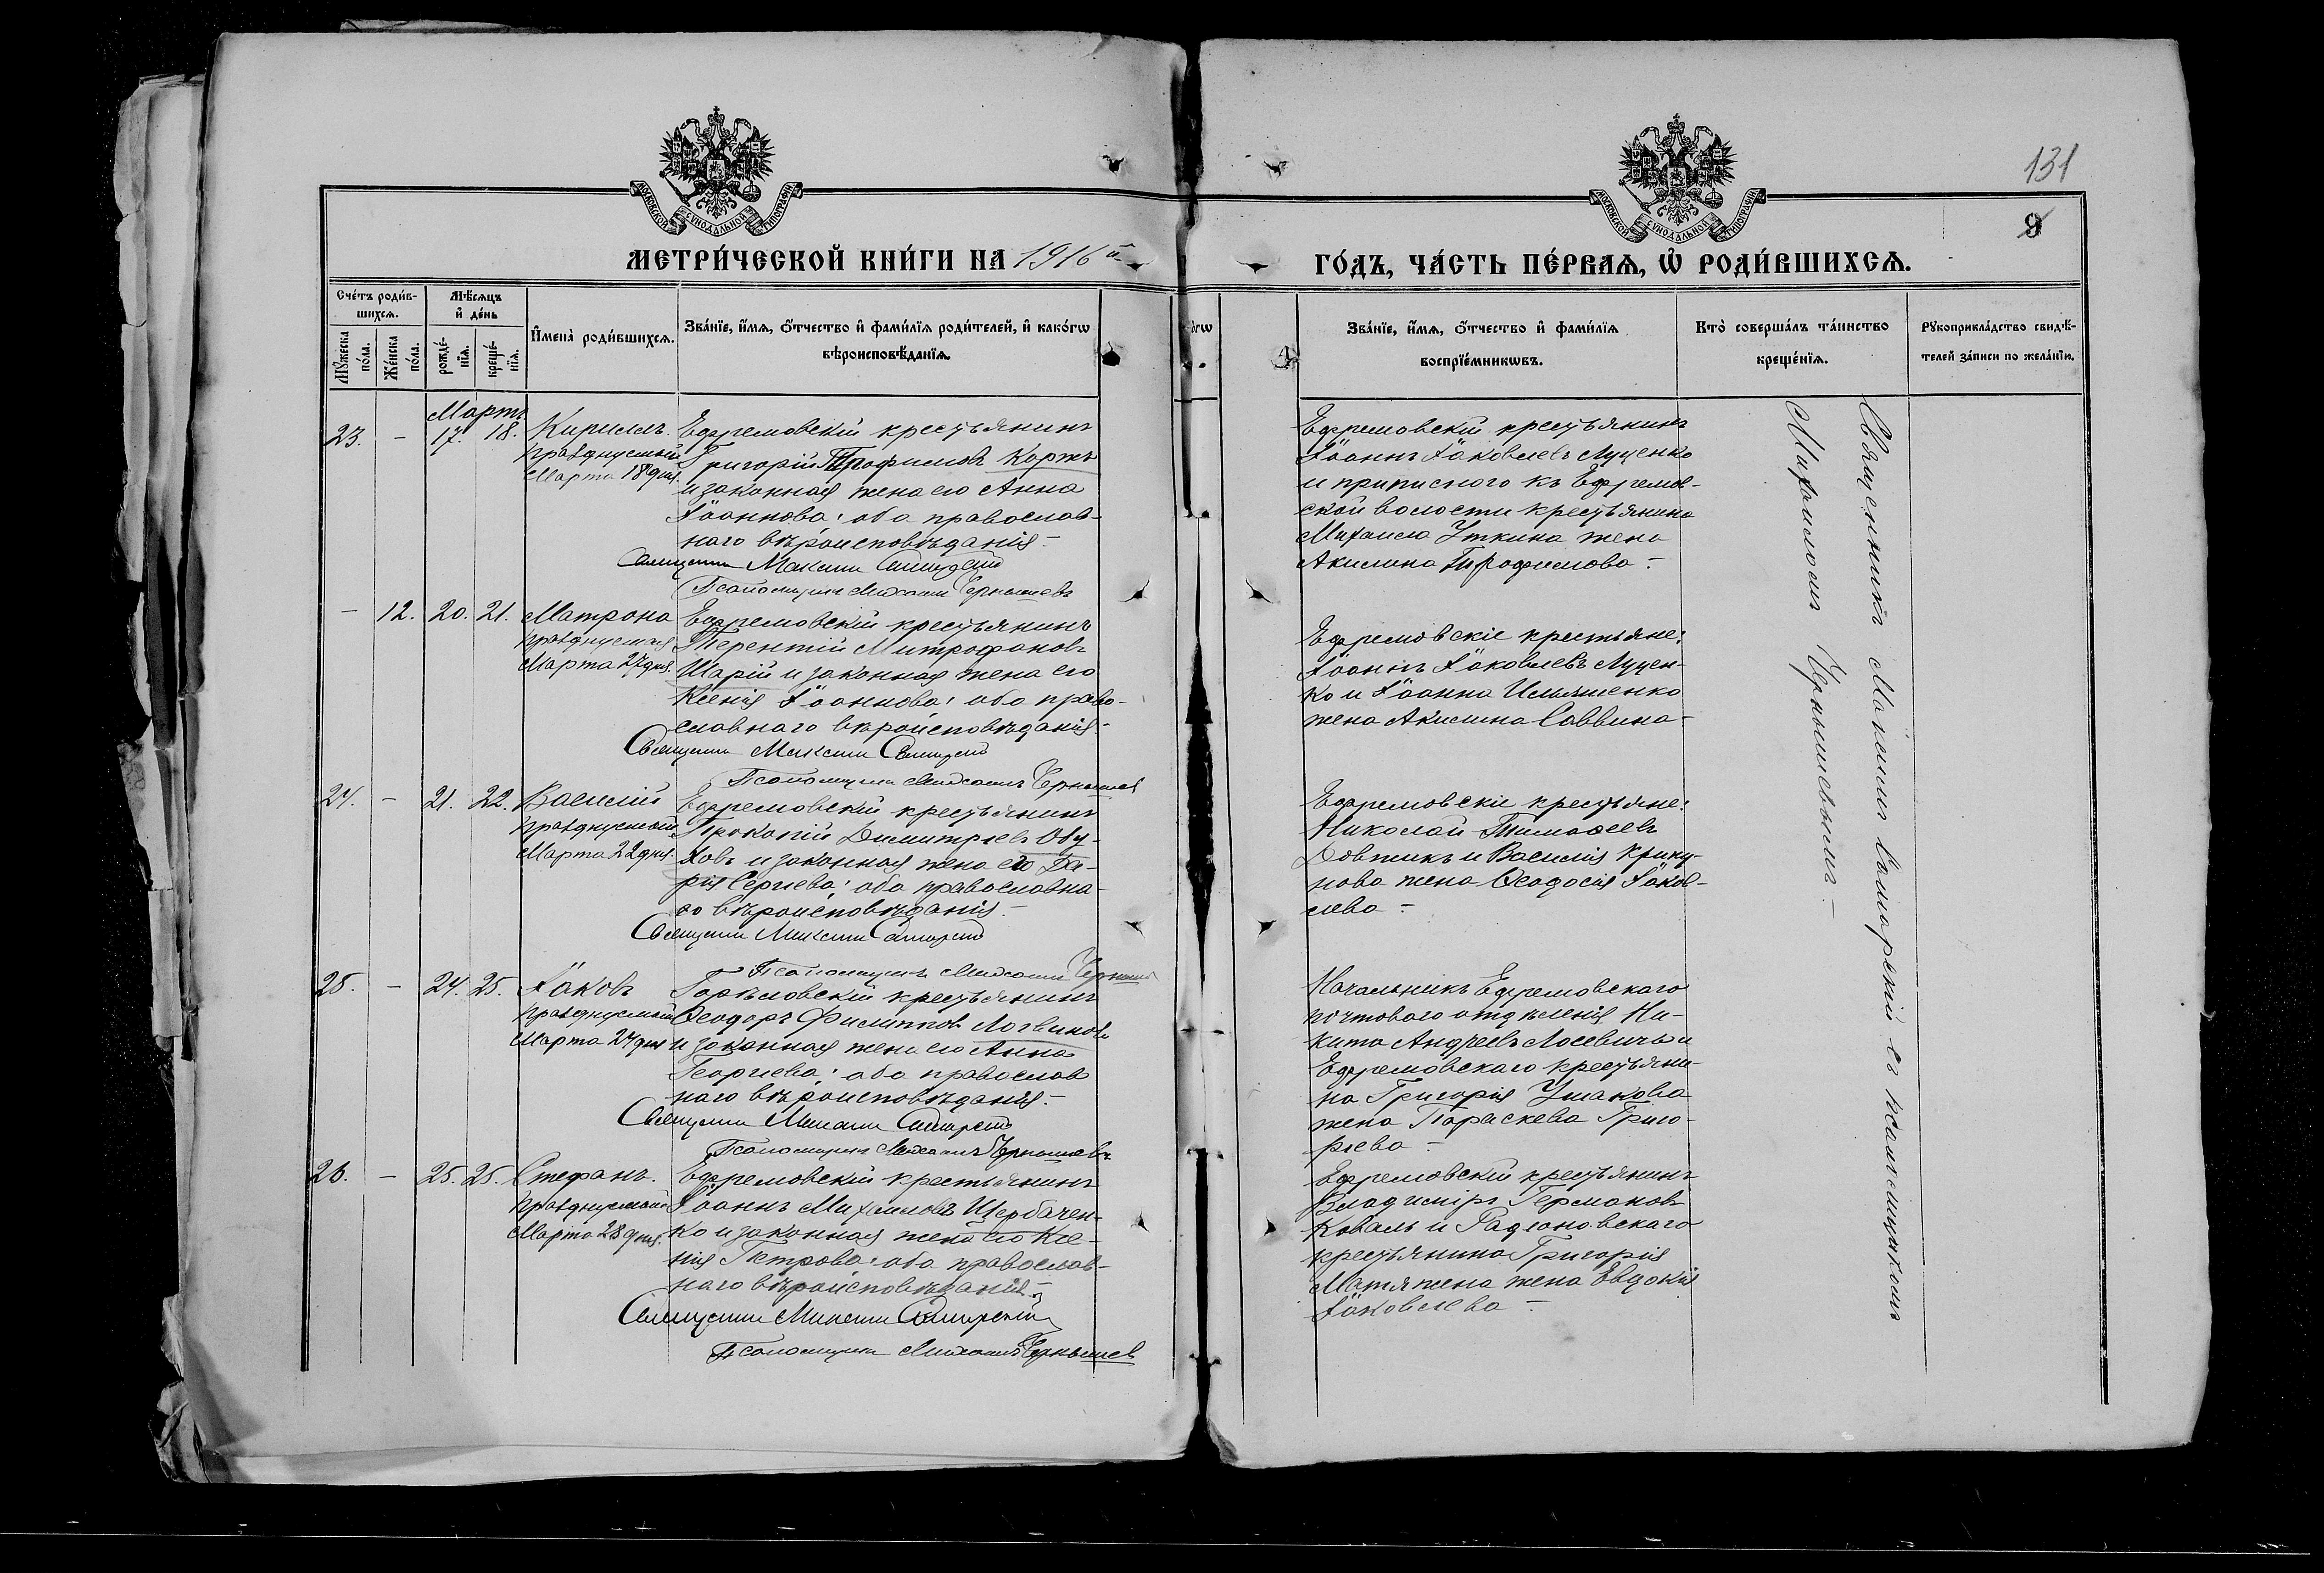 131
9
МОСКОВСКОЙ СУНОДАЛЬНОЙ ТИПОГРАФІИ
МОСКОВСКОЙ СУНОДАЛЬНОЙ ТИПОГРАФІИ
МЕТРИ́ЧЕСКОЙ КНИ́ГИ НА 1916 й
ГО́ДЪ, ЧА́СТЬ ПЕ́РВАѦ, Ѡ҆ РОДИ́ВШИХСѦ.
Сче́тъ роди́в-
шихсѧ.
Мꙋ́жеска по́ла.
Же́нска по́ла.
Мѣ́сѧцъ
и҆ де́нь
рожде́-
нїѧ.
креще́-
нїѧ.
И҆мена̀ роди́вшихсѧ.
Зва́нїе, и҆́мѧ, ѻ҆́тчество и҆ фами́лїѧ роди́телей, и҆ како́гѡ
вѣроисповѣ́данїѧ.
Зва́нїе, и҆́мѧ, ѻ҆́тчество и҆ фами́лїѧ
воспрїе́мникѡвъ.
Кто̀ соверша́лъ та́инство
креще́нїѧ.
Рꙋкоприкла́дство свидѣ́-
телей за́писи по жела́нїю.
Мартъ
23. - 17. 18. Кириллъ.
празднуемый
Марта 18 дня.
Ефремовскій крестьянинъ
Григорій Трофимовъ Коржъ
и законная жена его Анна
Іоаннова; оба православ-
наго вѣроисповѣданія.-
Священникъ Максимъ
Псаломщикъ Михаилъ Чернышевъ
Ефремовскій крестьянинъ
Іоаннъ Іаковлевъ Луценко
и приписного къ Ефремов-
ской волости крестьянина
Михаила Уткина жена
Акилина Трофимова.-
- 12. 20. 21. Матрона
празднуемая
Марта 27 дня.
Ефремовскій крестьянинъ
Терентій Митрофановъ
Шарій и законная жена его
Ксенія Іоаннова; оба право-
славнаго вѣроисповѣданія.-
Священникъ Максимъ
Псаломщикъ Михаилъ Чернышевъ
Ефремовскіе крестьяне:
Іоаннъ Іаковлевъ Луцен-
ко и Іоанна Ильяшенко
жена Акилина Саввина-
24. - 21. 22. Василій
празднуемый
Марта 22 дня.
Ефремовскій крестьянинъ
Прокопій Димитріевъ Обу-
ховъ и законная жена его Да-
рія Сергіева; оба православна-
го вѣроисповѣданія.-
Священникъ Максимъ
Псаломщикъ Михаилъ Чернышевъ
Ефремовскіе крестьяне:
Николай Тимоѳеевъ
Довжикъ и Василія Крику-
нова жена Ѳеодосія Іаков-
лева-
25. - 24. 25. Іаковъ
празднуемый
Марта 24 дня
Горѣловскій крестьянинъ
Ѳеодоръ Филипповъ Логвиновъ
и законная жена его Анна
Георгіева; оба православ
наго вѣроисповѣданія.-
Священникъ Максимъ
Псаломщикъ Михаилъ Чернышевъ
Начальникъ Ефремовскаго
почтоваго отдѣленія Ни-
кита Андреевъ Лосевичъ и
Ефремовскаго крестьяни-
на Григорія Ушакова
жена Параскева Григо-
рьева-
26. - 25. 25. Стефанъ.
празднуемый
Марта 28 дня.
Ефремовскій крестьянинъ
Іоаннъ Михаиловъ Щербачен-
ко и законная жена его Ксе-
нія Петрова; оба православ-
наго вѣроисповѣданія.-
Священникъ Максимъ
Псаломщикъ Михаилъ Чернышев
Ефремовскій крестьянинъ
Владиміръ Германовъ
Коваль и Радіоновскаго
крестьянина Григорія
жена Евдокія
Іаковлева-
Священникъ Максимъ съ псаломщикомъ
Михаиломъ Чернышевымъ.-